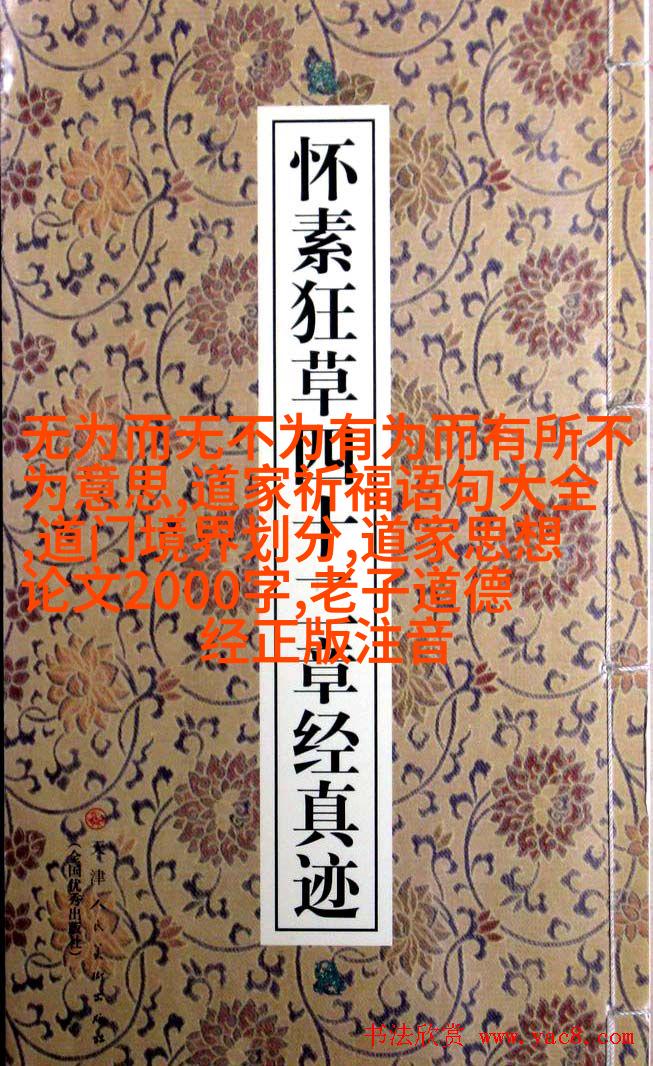 怀素狂草四十二章经真迹
无为而无不为有为而有所不
为意思,道家祈福语句大全
,道门境界划分,道家思想
论文2000字,老子道德
经正版注音
天津人民美术出版社
(全国优秀出版社)
书法欣赏 www.yac8.com